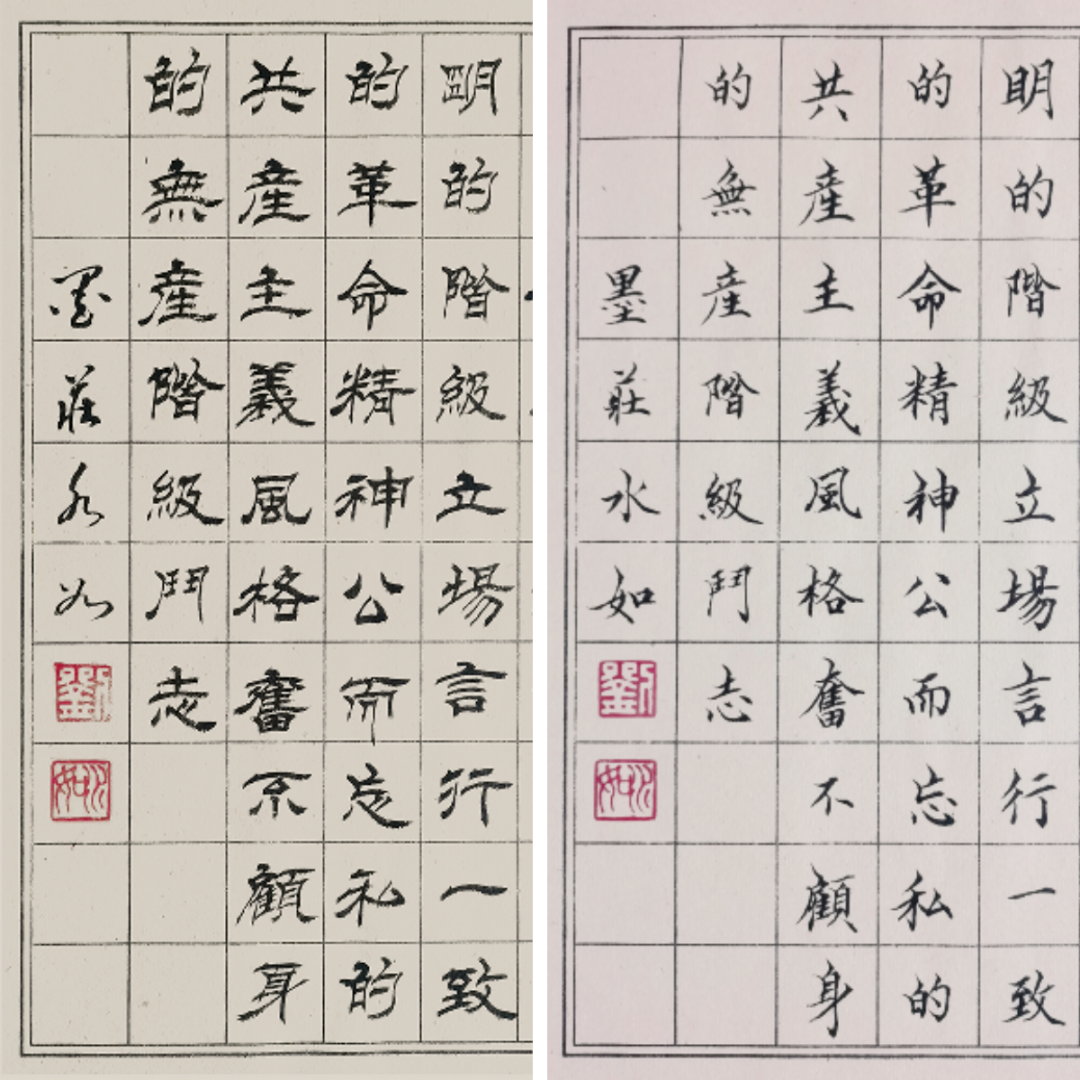 明的階級立場言行一致
的革命精神公而忘私的
共産主義風格奮不顧身
的無産階級鬥志
墨莊水如
劉
水如
明的階級立場言行一致
的革命精神公而忘私的
共産主義風格奮不顧身
的無産階級鬥志
墨莊水如
劉
水如